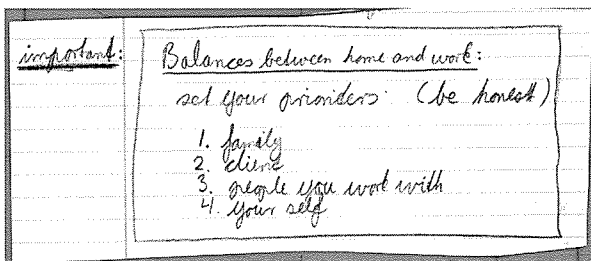 important:
Balances between home and work:
set your prioriders (be honest)
1. family
2. client
3. people you work with
4. your self